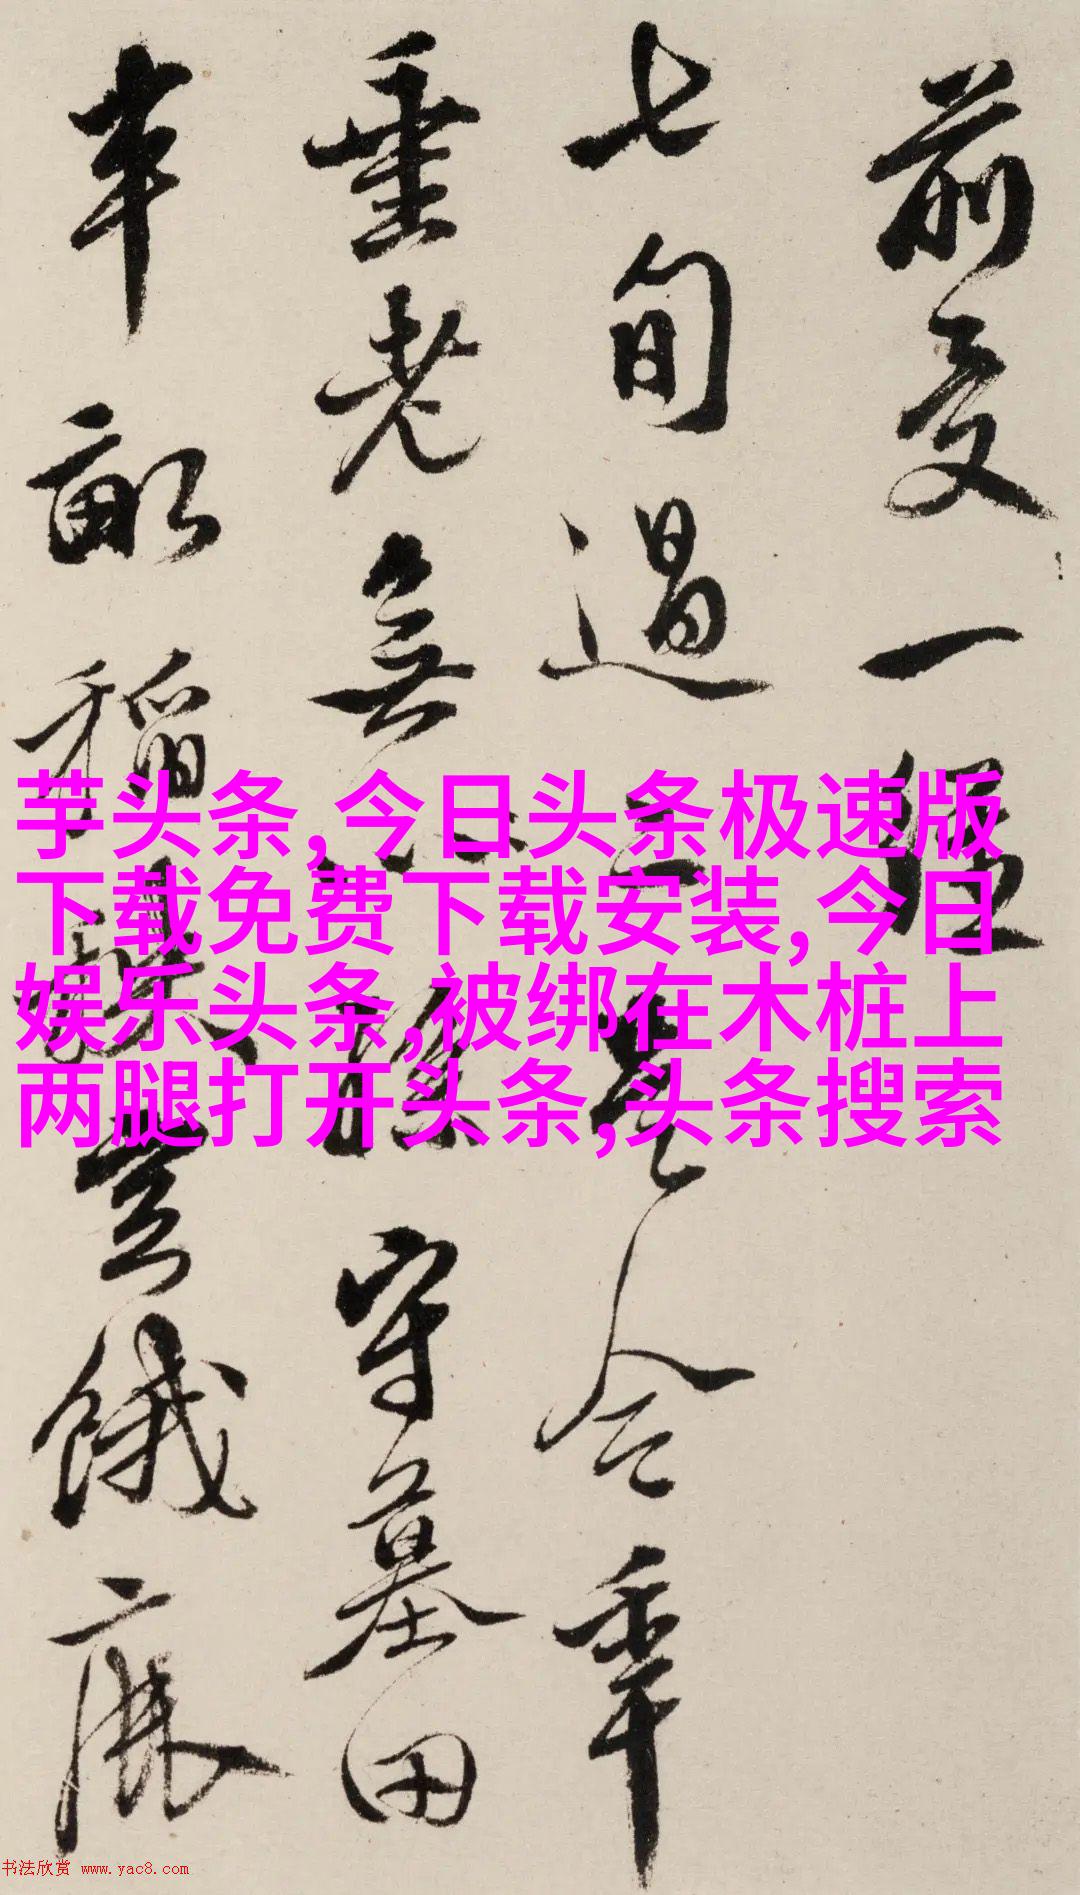 前受一经
七旬过三是今年
垂老无孙守墓田
半亩稻
空饿麻
芋头条,今日头条极速版
下载免费下载安装,今日
娱乐头条,被绑在木桩上
两腿打开头条,头条搜索
书法欣赏 www.yac8.com